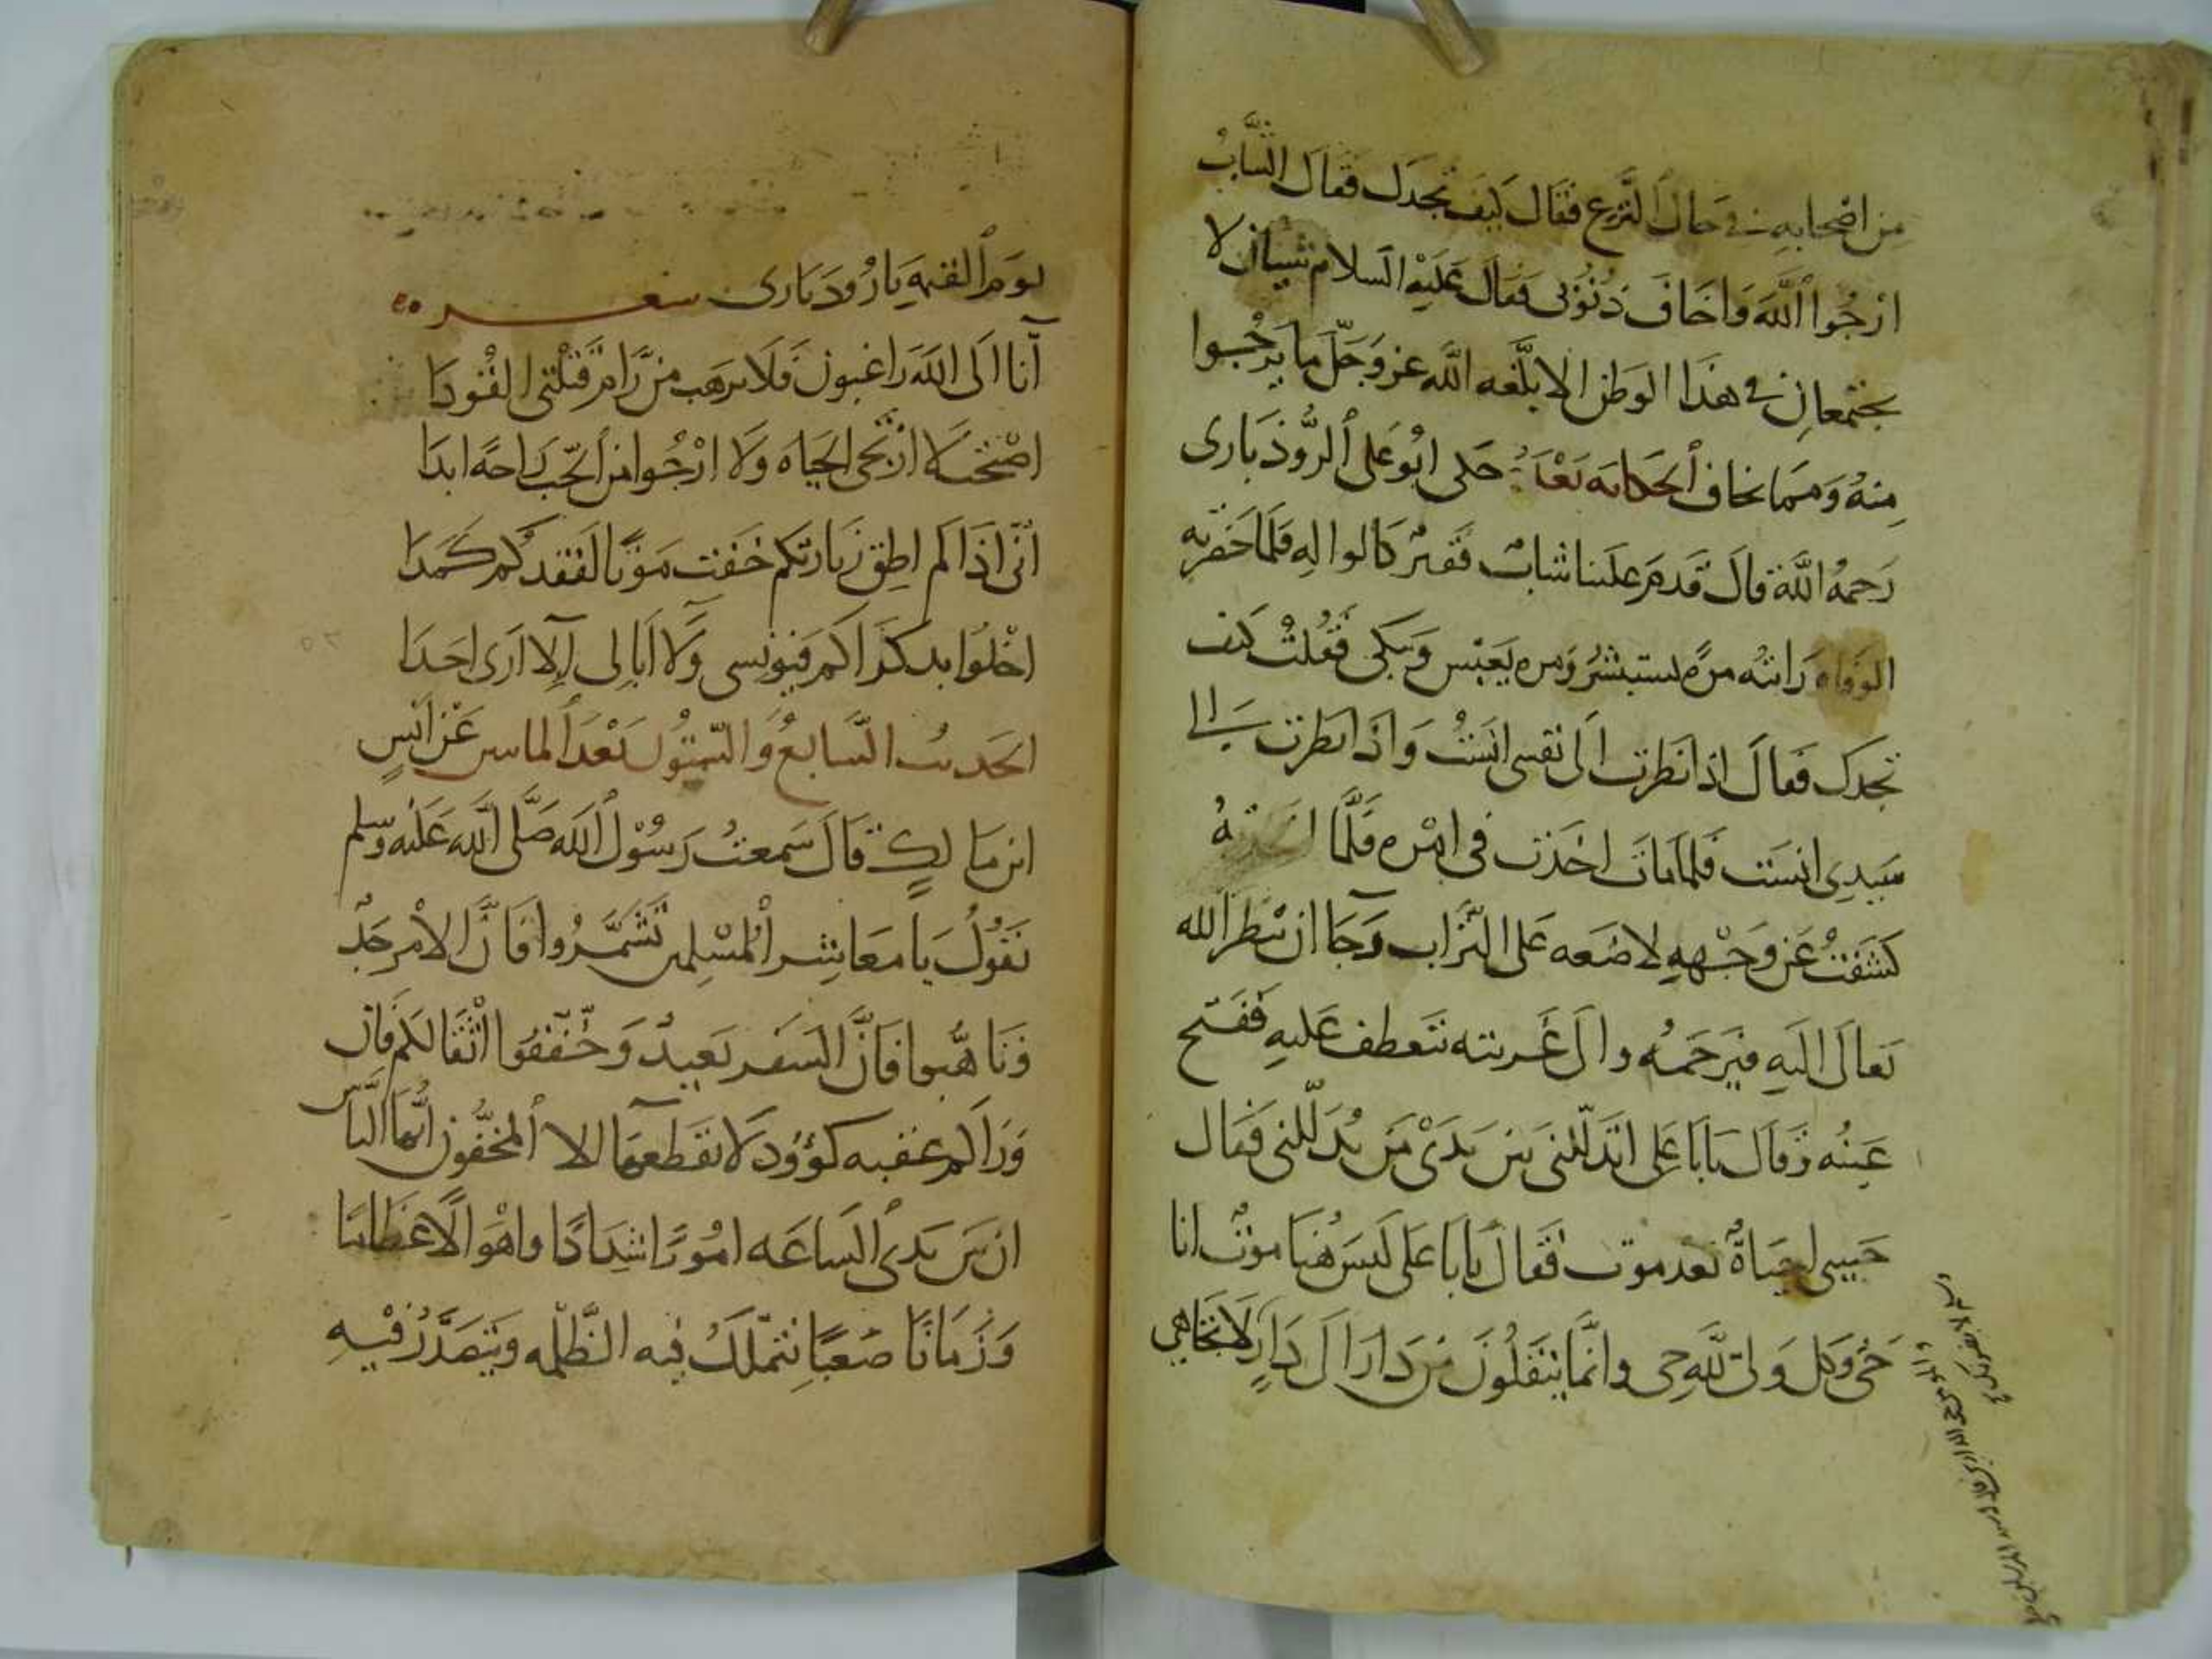 من اصحابه في حال النزع فقال كيف تجدك فقال الشاب
ارجوا الله واخاف ذنوبي فقال عليه السلام شيان لا
يجتمعان في هذا الوطن الا بلغه الله عز وجل ما يرجوا
منه ومما يخاف الحكايه بعد حكى ابو على الروذبارى
رحمه الله قال قدم علينا شاب فقير كالواله فلما حضرته
الوفاه رايته مرة يستبشر ومره يعبس وبكى فقلت كيف
تجدك فقال اذا نظرت الى نفسى انست واذا نظرت الى
سيدى انست فلما مات اخذت فى امره فلما
كشفت عن وجهه لاضعه على التراب رجا ان ينظر الله
تعالى اليه فيرحمه والى غربته فتعطف عليه ففتح
عينه وقال يابا على اتدللنى بين يدى من يدللنى فقال
حبيبى احياة بعد موت فقال يابا على ليس هنا موت انا
حى وكل ولى لله حى وانما ينقلون من دار الى دار لا تجاهى
يوم القيمه يا روذبارى شعر
انا الى الله راغبون فلا يرهب من رام قتلتى القودا
اصبحت لا ارتجى الحياه ولا ارجوا من الحب راحه ابدا
انى اذا لم اطق زيارتكم خفت موتا لفقدكم كمدا
اخلوا بذكراكم فيونسى ولا ابالى الا ارى احدا
الحديث السابع والستون بعد المايتين عن انس
ابن مالك قال سمعت رسول الله صلى الله عليه وسلم
يقول يا معاشر المسلمين تشمروا فان الامر جد
وتاهبوا فان السفر بعيد وخففوا اثقالكم فان
وراكم عقبه كوؤود لا يقطعها الا المخفون ايها الناس
ان بين يدى الساعه امورا شدادا واهوالا عظاما
وزمانا صعبا يتملك فيه الظلمه ويتصدر فيه